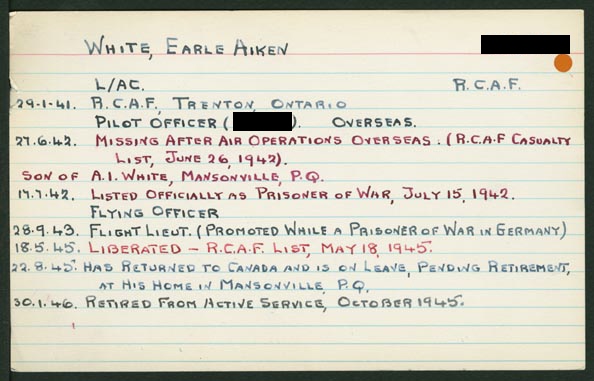 White, Earle Aiken
L/AC. R.C.A.F.
29-1-41. R.C.A.F, Trenton, Ontario
Pilot Officer ( ). Overseas.
27.6.42. Missing After Air Operations Overseas. (R.C.A.F Casualty
List, June 26, 1942).
Son of A.I. White, Mansonville, P.Q.
17.7.42. Listed Officially as Prisoner of War, July 15, 1942.
Flying Officer
28.9.43. Flight Lieut. (Promoted While a Prisoner of War in Germany)
18.5.45. Liberated – R.C.A.F. List, May 18, 1945.
22.8.45. Has Returned to Canada and is on Leave, Pending Retirement,
at His Home in Mansonville P.Q.
30.1.46. Retired From Active Service, October 1945.